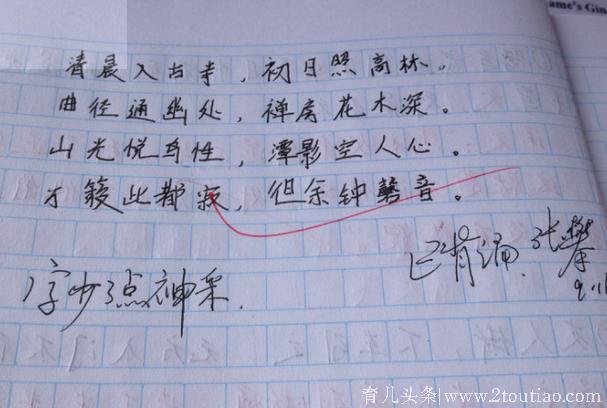 ame's Gin
清晨入古寺，初日照高林。
曲径通幽处，禅房花木深。
山光悦鸟性，潭影空人心。
万籁此都寂，但余钟磬音。
已背诵.
字少了点神采.
育儿头条/www.2toutiao.com